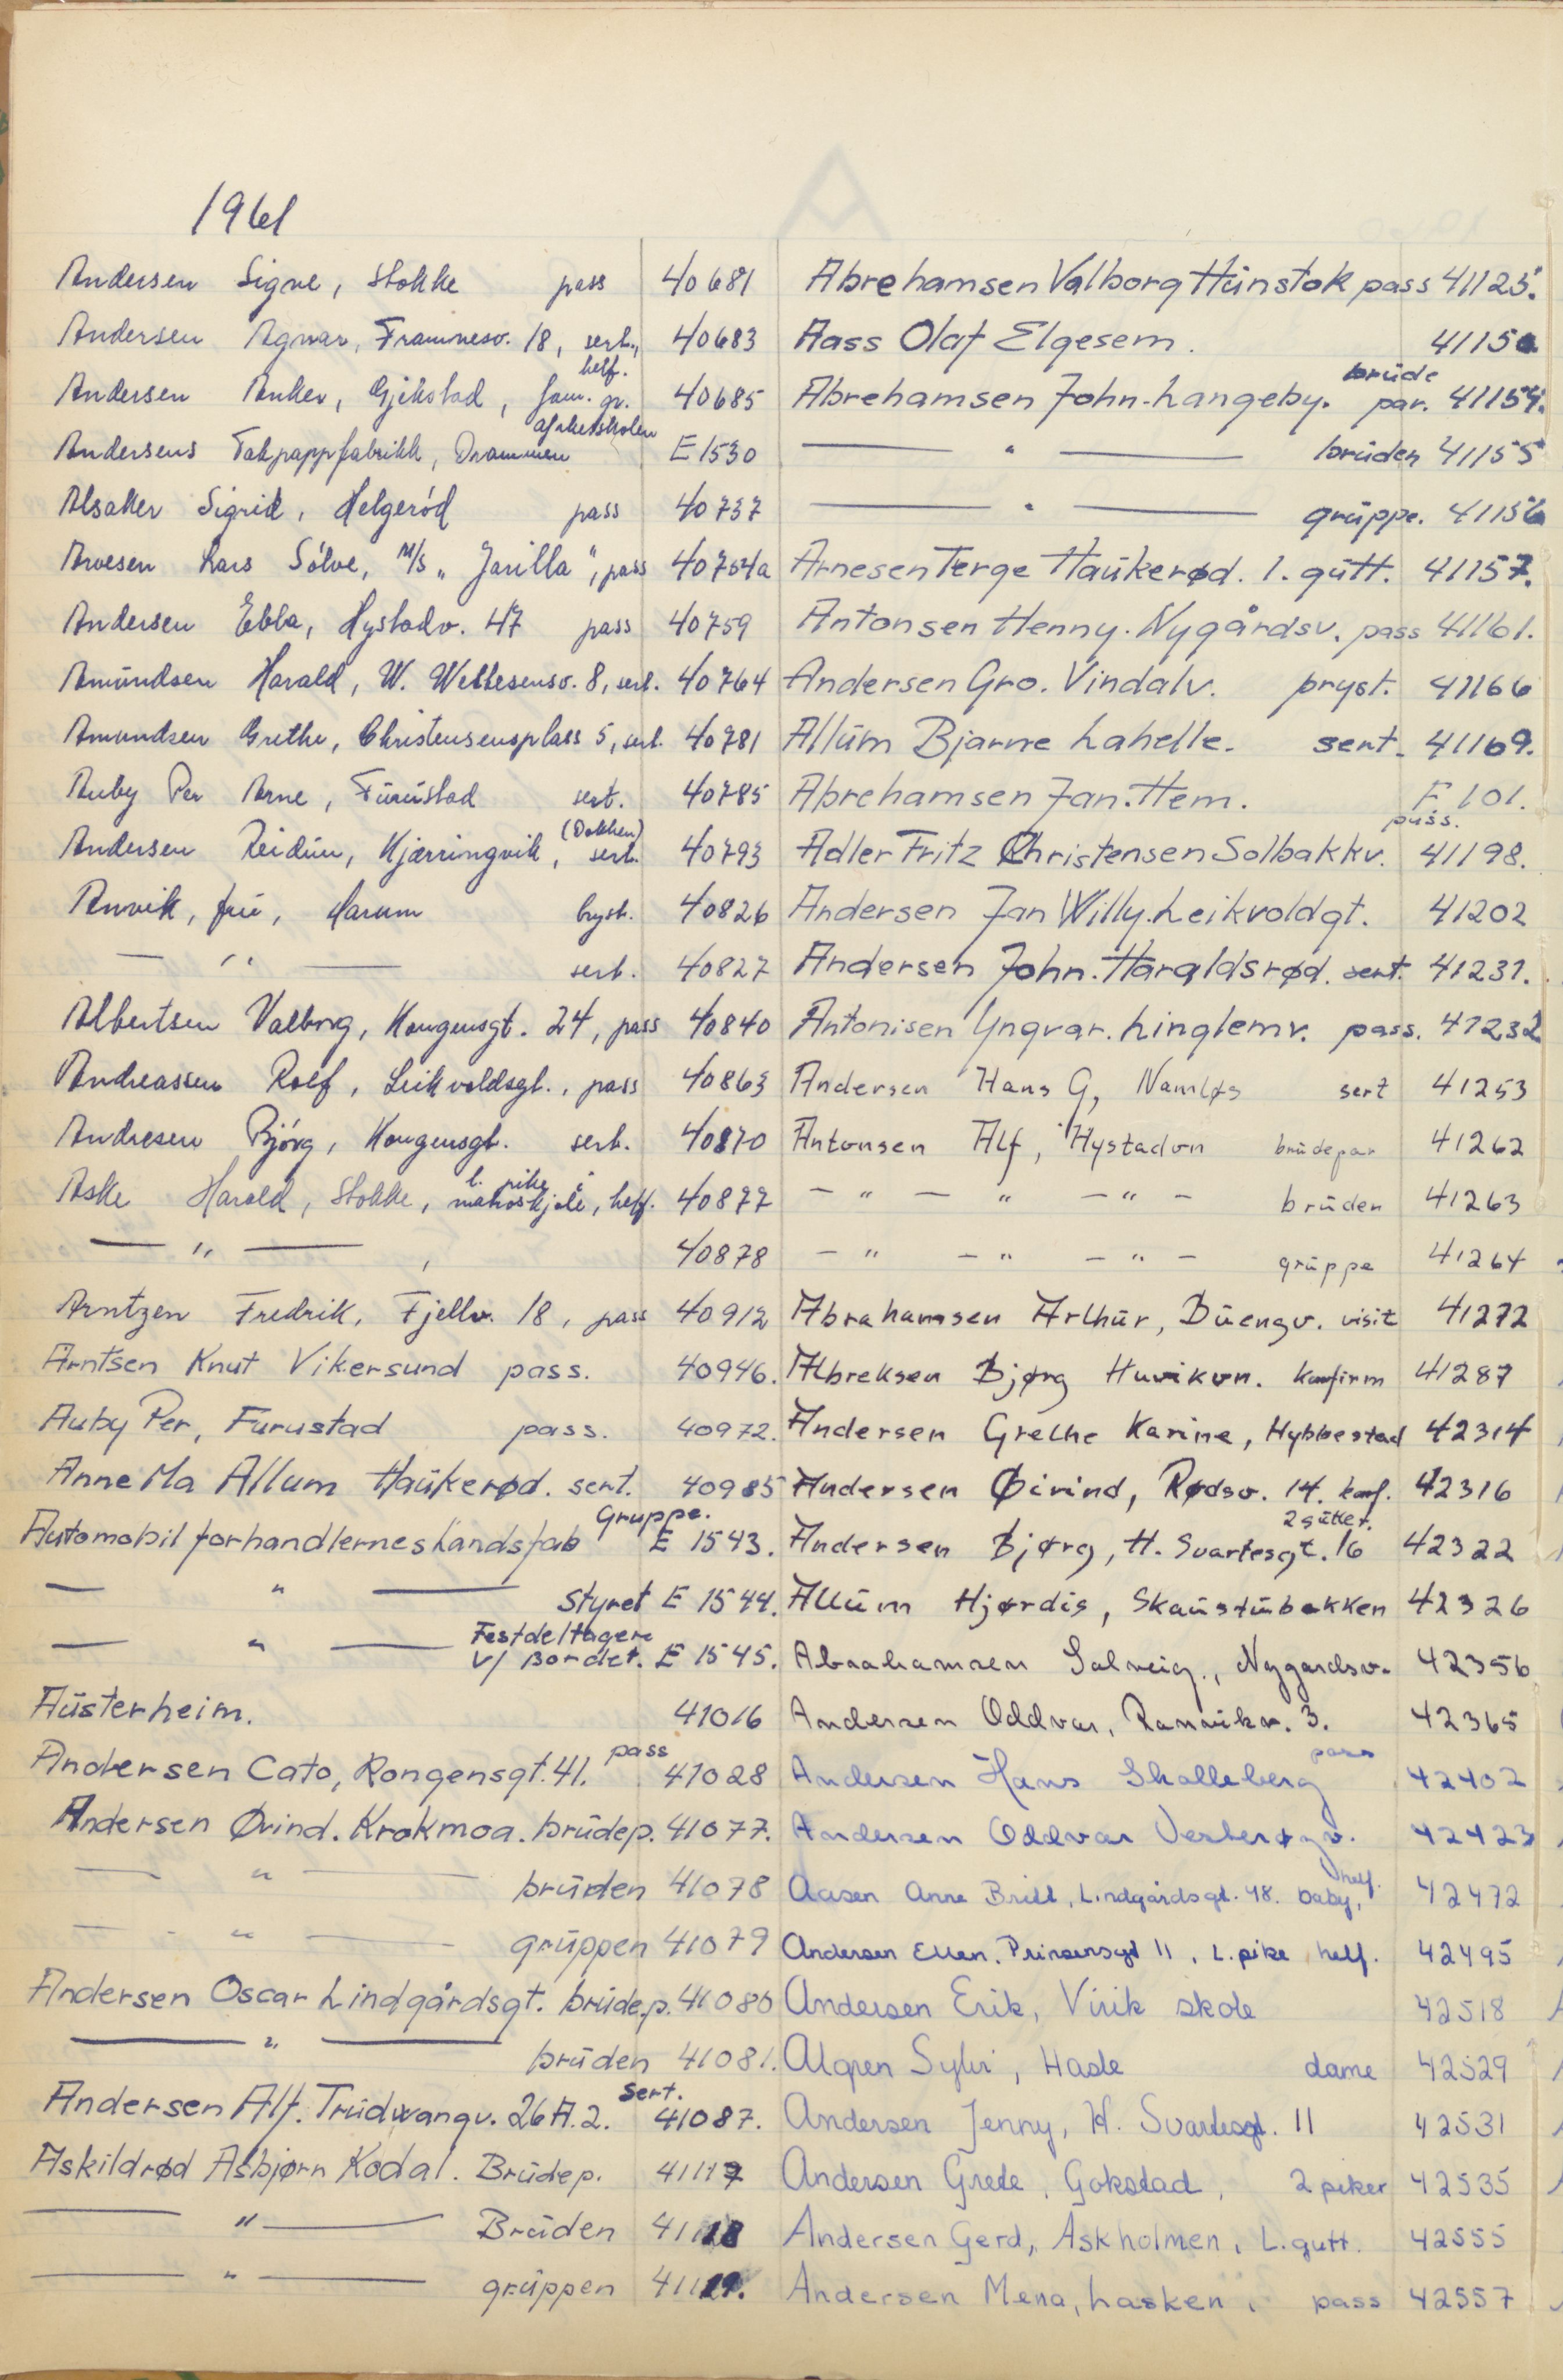 1961
Andersen Signe, Stokke pass 40681
Andersen Agnar, Framnesv. 18, sert., helf. 40683
Andersen Anker, Gjekstad, fam. gr. 40685
Andersens Takpappfabrikk, Drammen E 1530
Alsaker Sigrid, Helgerød pass 40737
Arvesen Lars Sølve, M/S „Jarilla", pass 40754a
Andersen Ebba, Hystadv. 47 pass 40759
Amundsen Harald, W. Wettesensv. 8, sert. 40764
Amundsen Grethe, Christensensplass 5, sert. 40781
Auby Per Arne, Furustad sert. 40785
Andersen Reidun, Kjærringvik, (Dokken) sert. 40793
Anvik, fru, Marum bryst. 40826
— " — sert. 40827
Albertsen Valborg, Kongensgt. 24, pass 40840
Andreassen Rolf, Leikvoldsgt., pass 40863
Andresen Bjørg, Kongensgt. sert. 40870
Aske Harald, Stokke, l. pike i matroskjole, helf. 40877
— " — , 40878
Arntzen Fredrik, Fjellv. 18, pass 40912
Arntsen Knut Vikersund pass. 40946.
Auby Per, Furustad pass. 40972.
Anne Ma Allum Haukerød. sert. 40985
Automobilforhandlernes Landsfab Gruppe. E 1543.
— " — Styret E 1544.
— " — Festdeltagere v/ Bordet. E 1545.
Austerheim. 41016
Andersen Cato, Kongensgt. 41. pass 41028
Andersen Øvind. Krokmoa. brudep. 41077.
— " — bruden 41078
— " — gruppen 41079
Andersen Oscar Lindgårdsgt. brudep. 41080
— " — bruden 41081.
Andersen Alf. Trudvangv. 26 A. 2. sert. 41087.
Askildrød Asbjørn Kodal. Brudep. 41117
— " — Bruden 41118
— " — gruppen 41119.
Abrehamsen Valborg Hunstok pass 41125.
Aass Olaf Elgesem. 41150
Abrehamsen John. Langeby. brude par. 41154.
— " — bruden 41155
— " — gruppe. 41156
Arnesen Terge Haukerød. 1. gutt. 41157.
Antonsen Henny. Nygårdsv. pass 41161.
Andersen Gro. Vindalv. bryst. 41166
Allum Bjarne Lahelle. sert. 41169.
Abrehamsen Jan. Hem. F. 101.
Adler Fritz Christensen Solbakkv. pass. 41198.
Andersen Jan Willy. Leikvoldgt. 41202
Andersen John. Haraldsrød. sert. 41231.
Antonisen Yngvar. Linglemv. pass. 41232
Andersen Hans G, Namløs sert 41253
Antonsen Alf, Hystadvn brudepar 41262
— " — " — " — bruden 41263
— " — " — " — gruppe 41264
Abrahamsen Arthur, Buengv. visit 41272
Albreksen Bjørg Huvikvn. Konfirm 41287
Andersen Grethe Karine, Hybbestad 42314
Andersen Øivind, Rødsv. 14. konf. 42316
Andersen Bjørg, H. Svartesgt. 16 2 gutter. 42322
Allum Hjørdis, Skaustubakken 42326
Abrahamsen Solveig., Nygardsv. 42356
Andersen Oddvar, Ranvikv. 3. 42365
Andersen Hans Skalleberg pass 42402
Andersen Oddvar Vesterøyv. 42423
Aasen Anne Britt, Lindgårdsgt. 48. baby, helf. 42472
Andersen Ellen. Prinsensgt 11, L. pike helf. 42495
Andersen Erik, Virik skole 42518
Algren Sylvi, Hasle dame 42529
Andersen Jenny, H. Svartesgt. 11 42531
Andersen Grete, Gokstad, 2 piker 42535
Andersen Gerd, Askholmen, L. gutt. 42555
Andersen Mena, Lasken, pass 42557